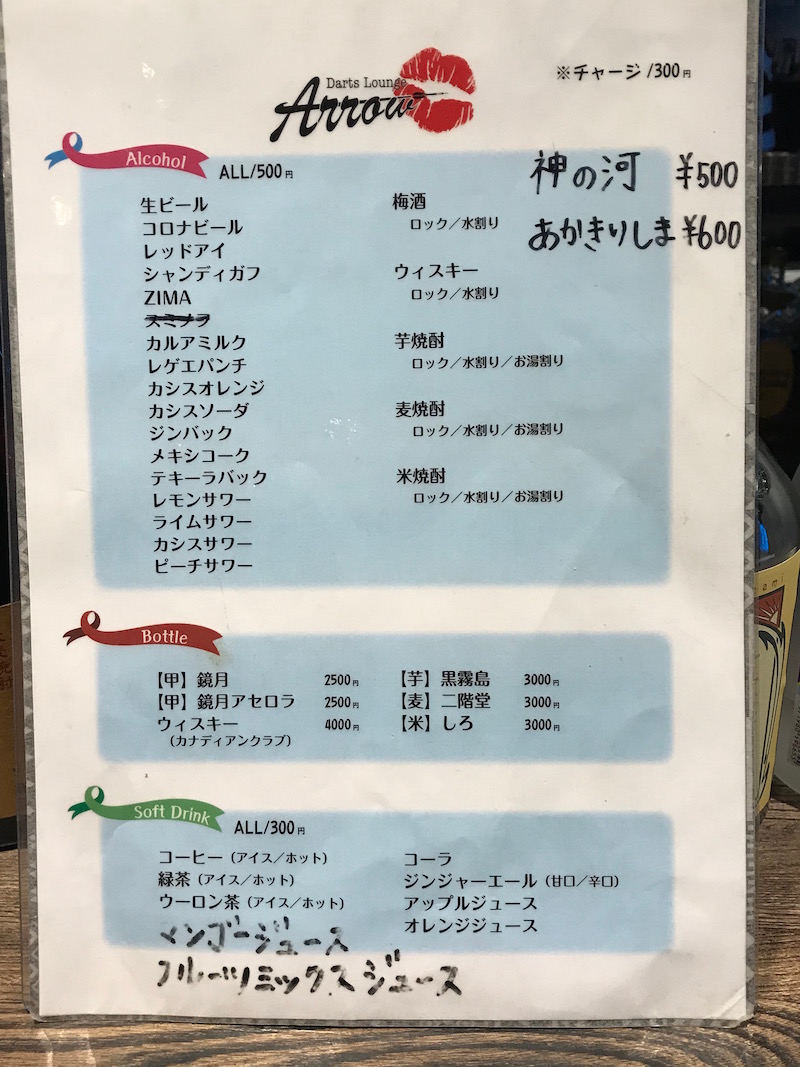 ※チャージ /300円
Darts Lounge
Arrow
Alcohol
ALL/500円
神の河 ¥500
あかきりしま ¥600
生ビール
コロナビール
レッドアイ
シャンディガフ
ZIMA
スミノフ
カルアミルク
レゲエパンチ
カシスオレンジ
カシスソーダ
ジンバック
メキシコーク
テキーラバック
レモンサワー
ライムサワー
カシスサワー
ピーチサワー
梅酒
ロック／水割り
ウィスキー
ロック／水割り
芋焼酎
ロック／水割り／お湯割り
麦焼酎
ロック／水割り／お湯割り
米焼酎
ロック／水割り／お湯割り
Bottle
【甲】鏡月 2500円
【甲】鏡月アセロラ 2500円
ウィスキー 4000円
（カナディアンクラブ）
【芋】黒霧島 3000円
【麦】二階堂 3000円
【米】しろ 3000円
Soft Drink
ALL/300円
コーヒー（アイス／ホット）
緑茶（アイス／ホット）
ウーロン茶（アイス／ホット）
マンゴージュース
フルーツミックスジュース
コーラ
ジンジャーエール（甘口／辛口）
アップルジュース
オレンジジュース